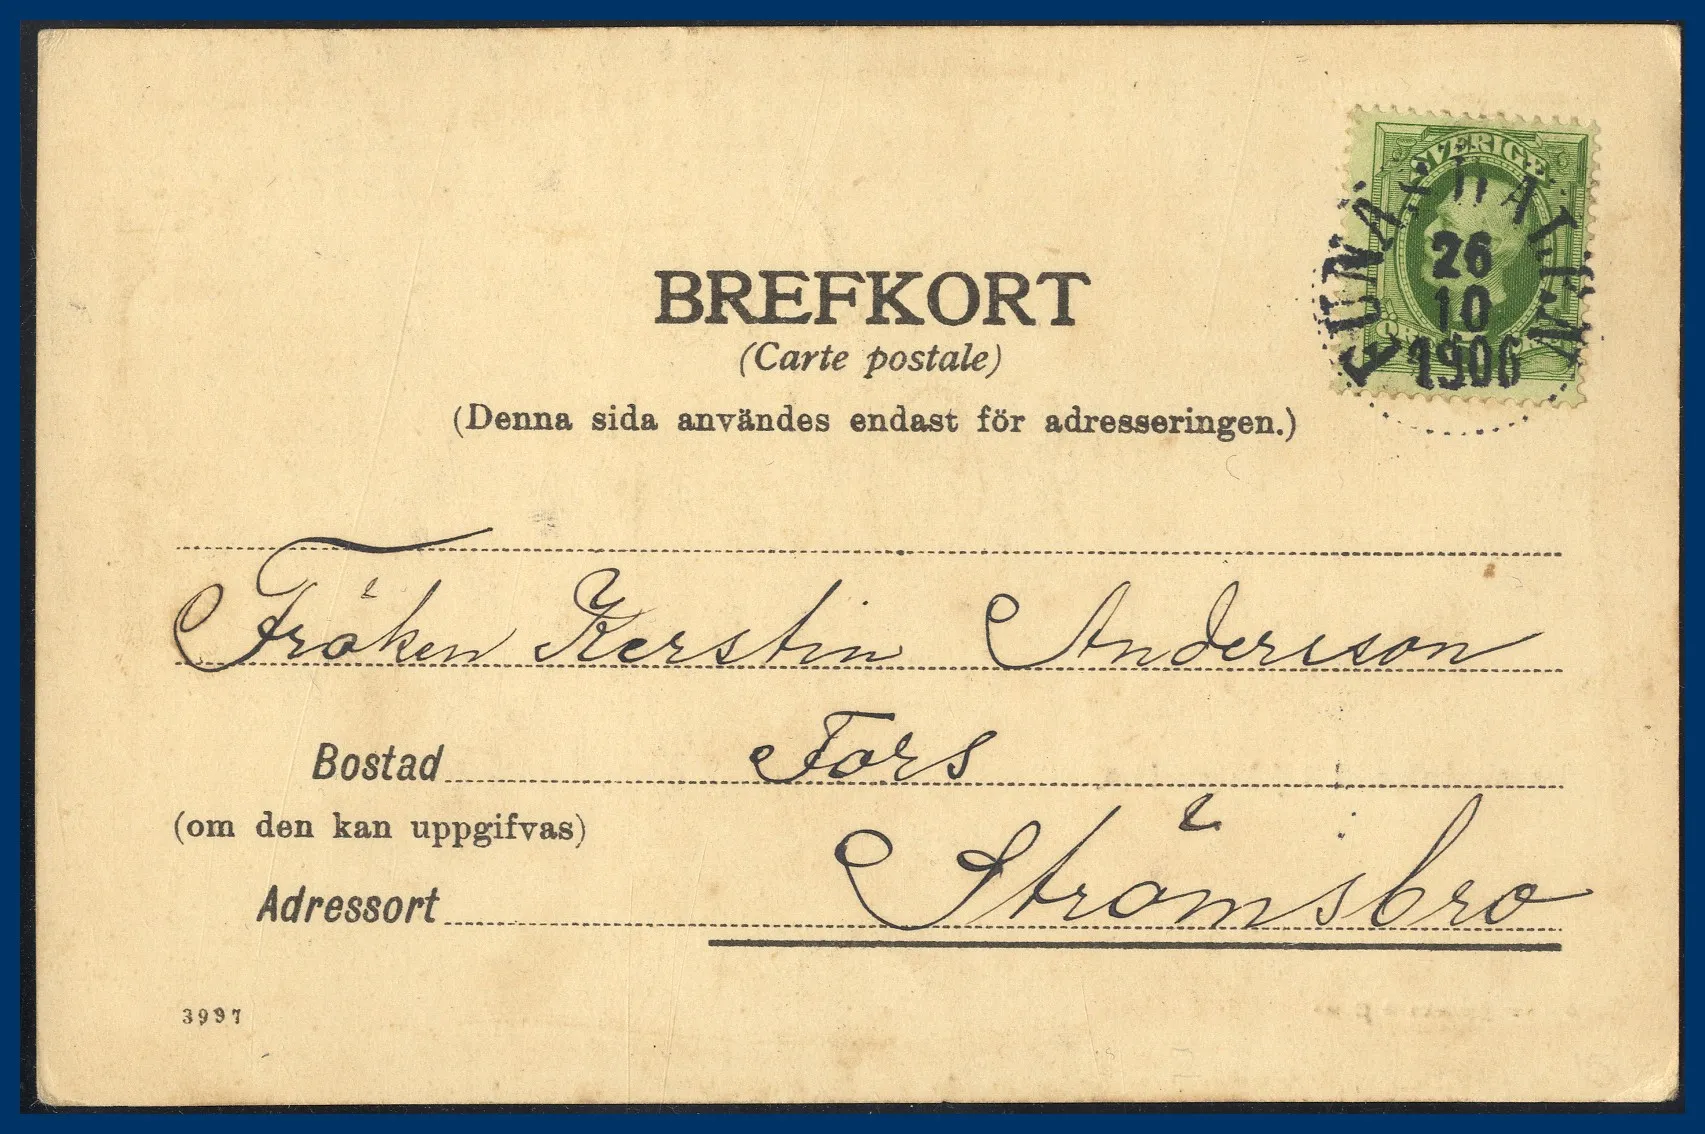 SVERIGE
26
10
1906
BREFKORT
(Carte postale)
(Denna sida användes endast för adresseringen.)
Fröken Kerstin Andersson
Bostad Fors
(om den kan uppgifvas)
Adressort Strömsbro
3997